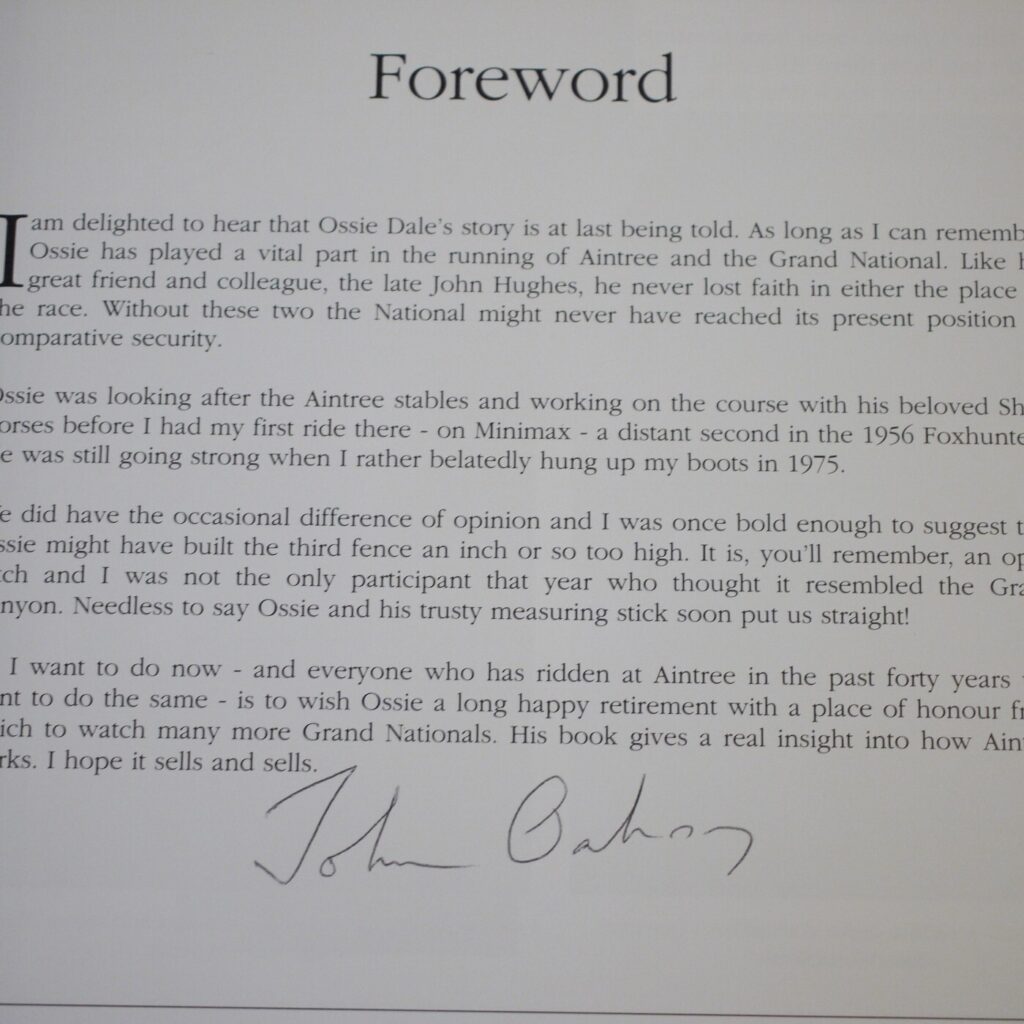 Foreword
I am delighted to hear that Ossie Dale's story is at last being told. As long as I can rememb
Ossie has played a vital part in the running of Aintree and the Grand National. Like h
great friend and colleague, the late John Hughes, he never lost faith in either the place
he race. Without these two the National might never have reached its present position
omparative security.
Ossie was looking after the Aintree stables and working on the course with his beloved Sh
orses before I had my first ride there - on Minimax - a distant second in the 1956 Foxhunte
e was still going strong when I rather belatedly hung up my boots in 1975.
e did have the occasional difference of opinion and I was once bold enough to suggest t
ssie might have built the third fence an inch or so too high. It is, you'll remember, an op
tch and I was not the only participant that year who thought it resembled the Gra
nyon. Needless to say Ossie and his trusty measuring stick soon put us straight!
I want to do now - and everyone who has ridden at Aintree in the past forty years
nt to do the same - is to wish Ossie a long happy retirement with a place of honour fr
ich to watch many more Grand Nationals. His book gives a real insight into how Ain
rks. I hope it sells and sells.
John Oaksey